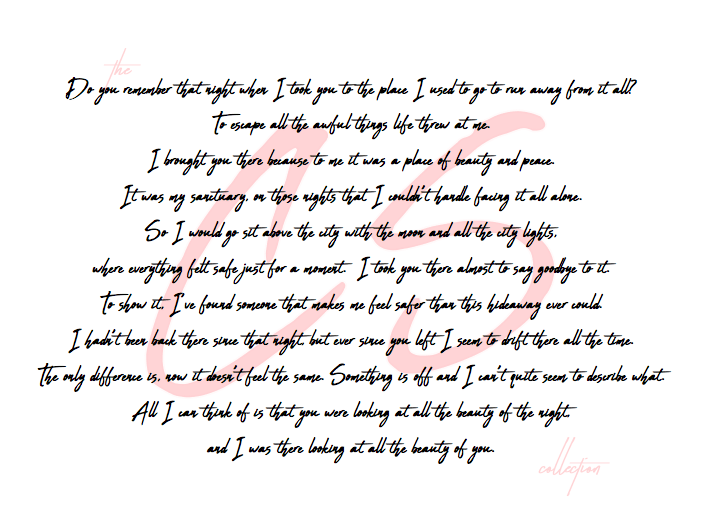 the
Do you remember that night when I took you to the place I used to go to run away from it all?
To escape all the awful things life threw at me.
I brought you there because to me it was a place of beauty and peace.
It was my sanctuary, on those nights that I couldn't handle facing it all alone.
So I would go sit above the city with the moon and all the city lights,
where everything felt safe just for a moment. I took you there almost to say goodbye to it.
To show it, I've found someone that makes me feel safer than this hideaway ever could.
I hadn't been back there since that night, but ever since you left I seem to drift there all the time.
The only difference is, now it doesn't feel the same. Something is off and I can't quite seem to describe what.
All I can think of is that you were looking at all the beauty of the night,
and I was there looking at all the beauty of you.
CS
collection